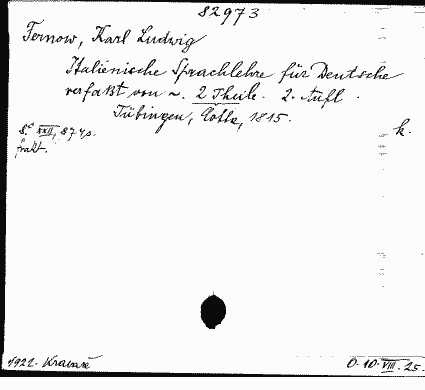 82973
Fernow, Karl Ludwig
Italienische Sprachlehre für Deutsche
verfaßt von ~. 2 Theile. 2. Aufl.
Tübingen, Cotta, 1815.
8.° XXII, 874 s.
k.
frakt.
1922. Kramář
O. 10. VIII. 25.